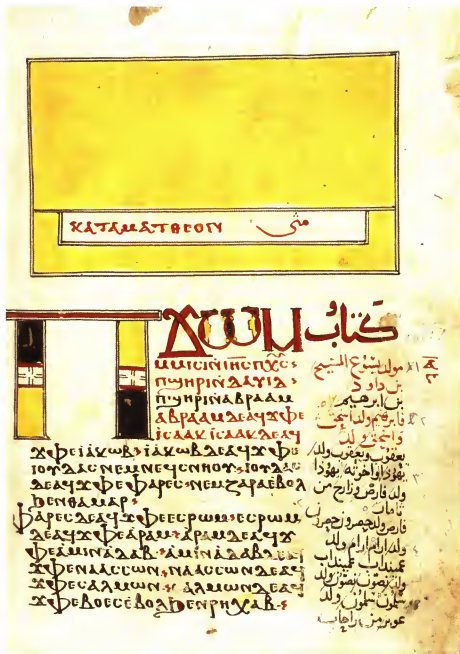 ⲕⲁⲧⲁⲙⲁⲧⲑⲉⲟⲛ متى
ⲡϫⲱⲙ
ⲙⲙⲓⲥⲓⲛⲓⲏⲥⲡⲭⲥ
ⲡϣⲏⲣⲓⲛⲇⲁⲩⲓⲇ
ⲡϣⲏⲣⲓⲛⲁⲃⲣⲁⲁⲙ
ⲁⲃⲣⲁⲁⲙⲇⲉⲁϥϫⲫⲉ
ⲓⲥⲁⲁⲕⲓⲥⲁⲁⲕⲇⲉⲁϥ
ϫⲫⲉⲓⲁⲕⲱⲃ ⲓⲁⲕⲱⲃⲇⲉⲁϥϫⲫⲉ
ⲓⲟⲩⲇⲁⲥⲛⲉⲙⲛⲉϥⲥⲛⲏⲟⲩ ⲓⲟⲩⲇⲁⲥ
ⲇⲉⲁϥϫⲫⲉⲫⲁⲣⲉⲥ ⲛⲉⲙⲍⲁⲣⲁⲉⲃⲟⲗ
ϧⲉⲛⲑⲁⲙⲁⲣ
ⲫⲁⲣⲉⲥⲇⲉⲁϥϫⲫⲉⲉⲥⲣⲱⲙ ⲉⲥⲣⲱⲙ
ⲇⲉⲁϥϫⲫⲉⲁⲣⲁⲙ ⲁⲣⲁⲙⲇⲉⲁϥϫ
ⲫⲉⲁⲙⲓⲛⲁⲇⲁⲃ ⲁⲙⲓⲛⲁⲇⲁⲃⲇⲉⲁϥ
ϫⲫⲉⲛⲁⲁⲥⲥⲱⲛ ⲛⲁⲁⲥⲥⲱⲛⲇⲉⲁϥ
ϫⲫⲉⲥⲁⲗⲙⲱⲛ ⲥⲁⲗⲙⲱⲛⲇⲉⲁϥ
ϫⲫⲉⲃⲟⲉⲥⲉⲃⲟⲗϧⲉⲛⲣⲓⲭⲁⲃ
كتاب
مولد يسوع المسيح
بن داود
بن ابرهيم
فابرهيم ولد اسحق
واسحق ولد
يعقوب ويعقوب ولد
يهودا واخوته يهودا
ولد فارص وزارح من
تامار
فارص ولد حصرون حصرون
ولد ارام ارام ولد
عميناداب عميناداب
ولد نصون نصون ولد
سلمون سلمون ولد
عوبز من راحاب